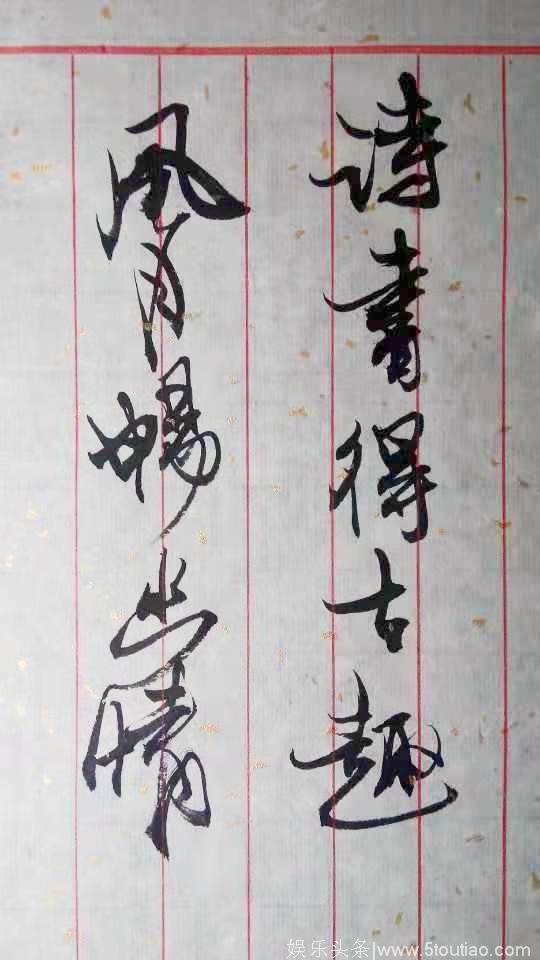 诗書得古趣
风月暢幽情
娱乐头条|www.5toutiao.com